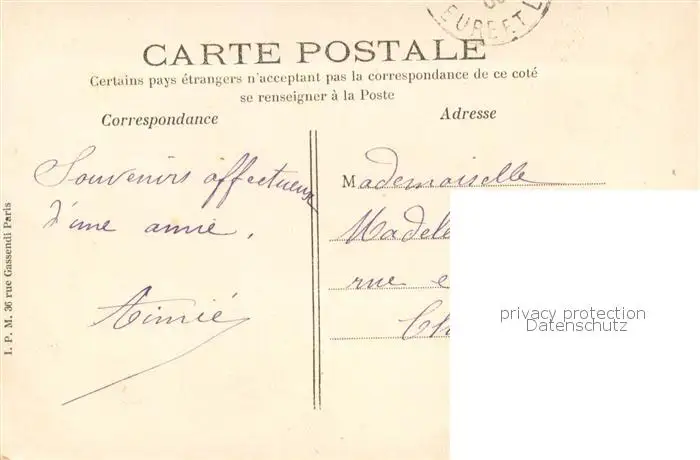 EURE ET L
CARTE POSTALE
Certains pays étrangers n'acceptant pas la correspondance de ce coté
se renseigner à la Poste
Correspondance
Adresse
Souvenirs affectueux
d'une amie.
Aimié
Mademoiselle
Madel
rue e
Ch
privacy protection
Datenschutz
I. P. M. 36 rue Gassendi Paris